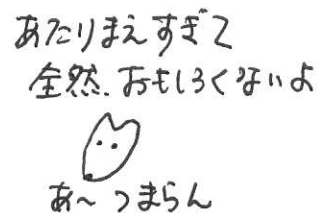 あたりまえすぎて
全然、おもしろくないよ
あ〜つまらん